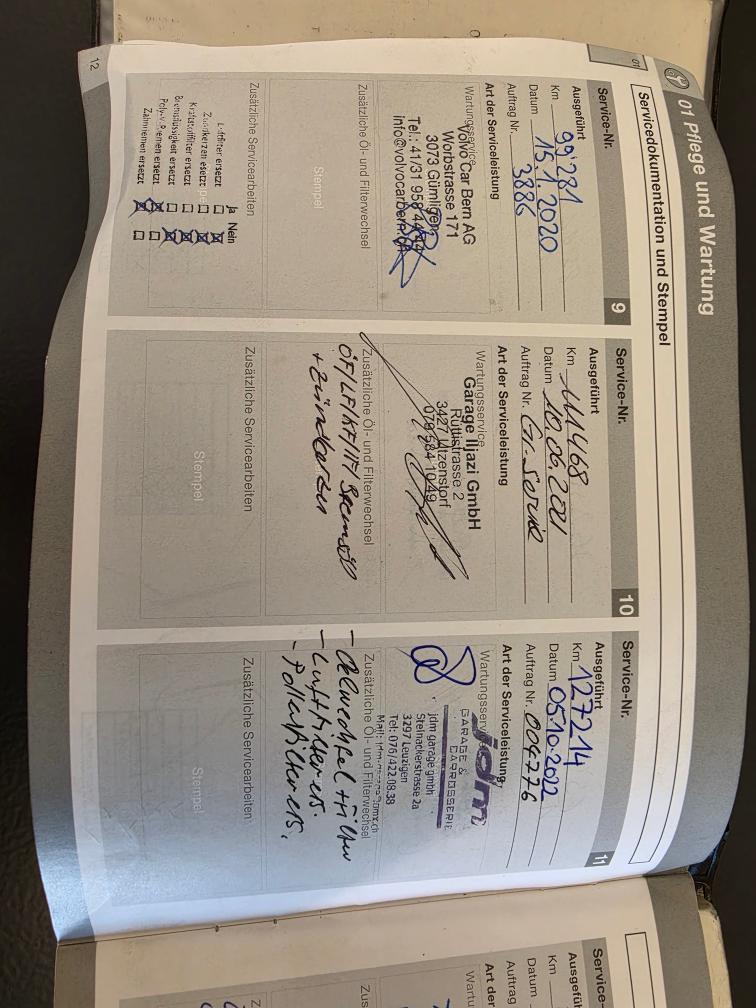 01 Pflege und Wartung
01
Servicedokumentation und Stempel
Service-Nr. 9
Ausgeführt
Km 99'281
Datum 15.1.2020
Auftrag Nr. 3886
Art der Serviceleistung
Wartungsservice
Volvo Car Bern AG
Worbstrasse 171
3073 Gümligen
Tel.: 41/31 958
info@volvocarbern.ch
Zusätzliche Öl- und Filterwechsel
Stempel
Zusätzliche Servicearbeiten
Ja Nein
Luftfilter ersetzt
Zündkerzen esetzt
Kraftstoffilter ersetzt
Bremsflüssigkeit ersetzt
Poly-V-Riemen ersetzt
Zahnriemen ersetzt
Service-Nr. 10
Ausgeführt
Km 111468
Datum 10.06.2021
Auftrag Nr. Gr. Service
Art der Serviceleistung
Wartungsservice
Garage Iljazi GmbH
Rüttistrasse 2
3427 Utzenstorf
079 584 10 49
Zusätzliche Öl- und Filterwechsel
ÖF/LF/KF/IF/
+ Zündkerzen
Zusätzliche Servicearbeiten
Stempel
Service-Nr. 11
Ausgeführt
Km 127214
Datum 05.10.2022
Auftrag Nr. 004776
Art der Serviceleistung
Wartungsservice
jdm
GARAGE &
CARROSSERIE
jdm garage gmbh
Steinackerstrasse 2a
3297 Leuzigen
Tel: 076/422 08 38
Zusätzliche Öl- und Filterwechsel
- Oelwechsel + Filter
- Luftfilter ers.
- Pollenfilter ers.
Zusätzliche Servicearbeiten
Stempel
12
Service-
Ausgefü
Km
Datum
Auftrag
Art der
Wartu
Zus
Z